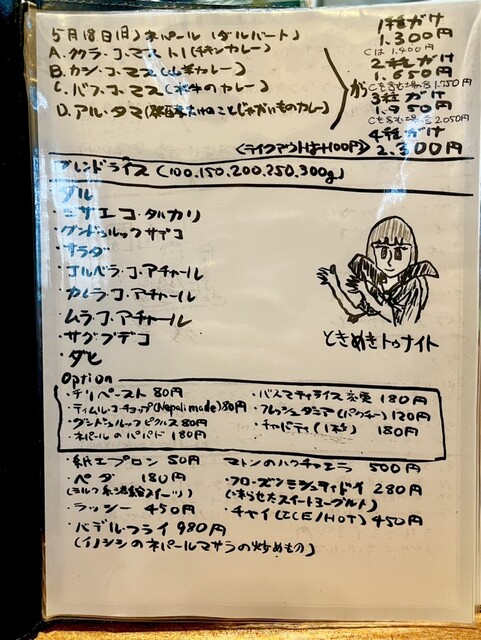 5月18日(日) ネパール (ダルバート)
A.ククラ.コ.マス (チキンカレー)
B.カシ.コ.マス(山羊カレー)
C.バフ.コ.マス(水牛のカレー)
D.アル.タマ(たけのことじゃがいものカレー)
から
1種がけ
1.300円
Cは1.400円
2種がけ
1.650円
Cを含む場合1.750円
3種がけ
1.950円
Cを含む場合2.050円
4種がけ
2.300円
<テイクアウトは+100円>
ブレンドライス (100.150.200.250.300g)
・ダル
・ミサエコ・タルカリ
・グンドゥルック サデコ
・サラダ
・ゴルベラ・コ・アチャール
・カレラ・コ・アチャール
・ムラ・コ・アチャール
・サグ
・ダヒ
ときめきトゥナイト
Option
・チリペースト 80円
・ティムル・コ・チョップ(Nepali made)80円
・グンドゥルック ピクルス 80円
・ネパールのパパド 180円
・バスマティライス変更 180円
・フレッシュダニア(パクチー) 120円
・チャパティ(1枚) 180円
・紙エプロン 50円
・ペダ 180円
(ミルク系スイーツ)
・ラッシー 450円
・バデルフライ 980円
(イノシシのネパールマサラの炒めもの)
マトンのハクチャエラ 500円
・フローズンミシュティドイ 280円
(凍らせたスイートヨーグルト)
・チャイ(ICE/HOT) 450円